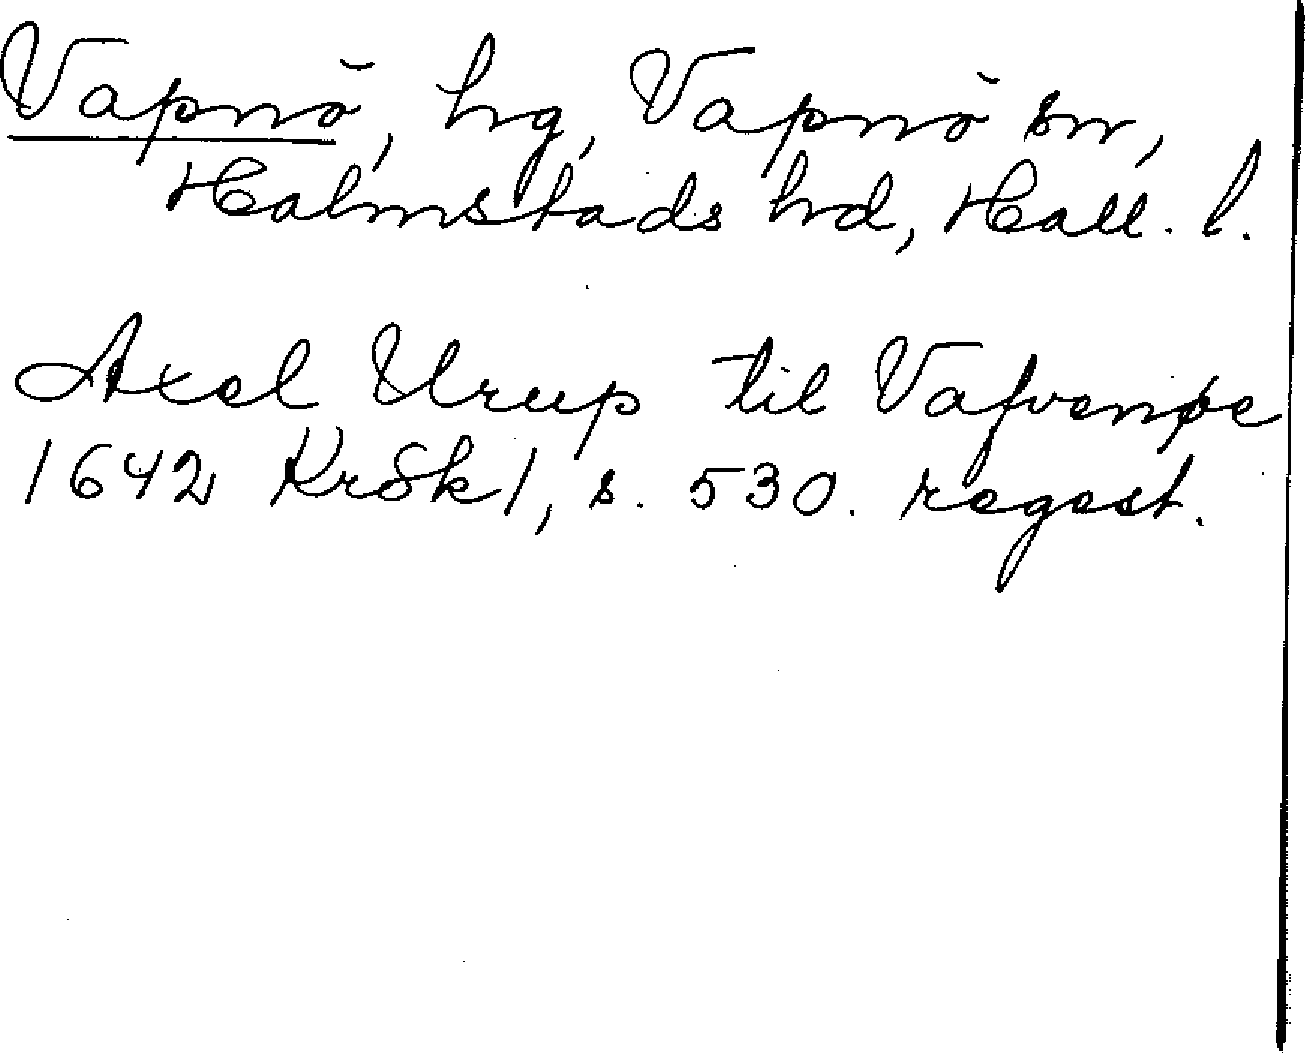 Vapnö, hg, Vapnö sn,
Halmstads hd, Hall. l.
Axel Urup til Vafvenøe
1642 KrSk 1, s. 530. regest.